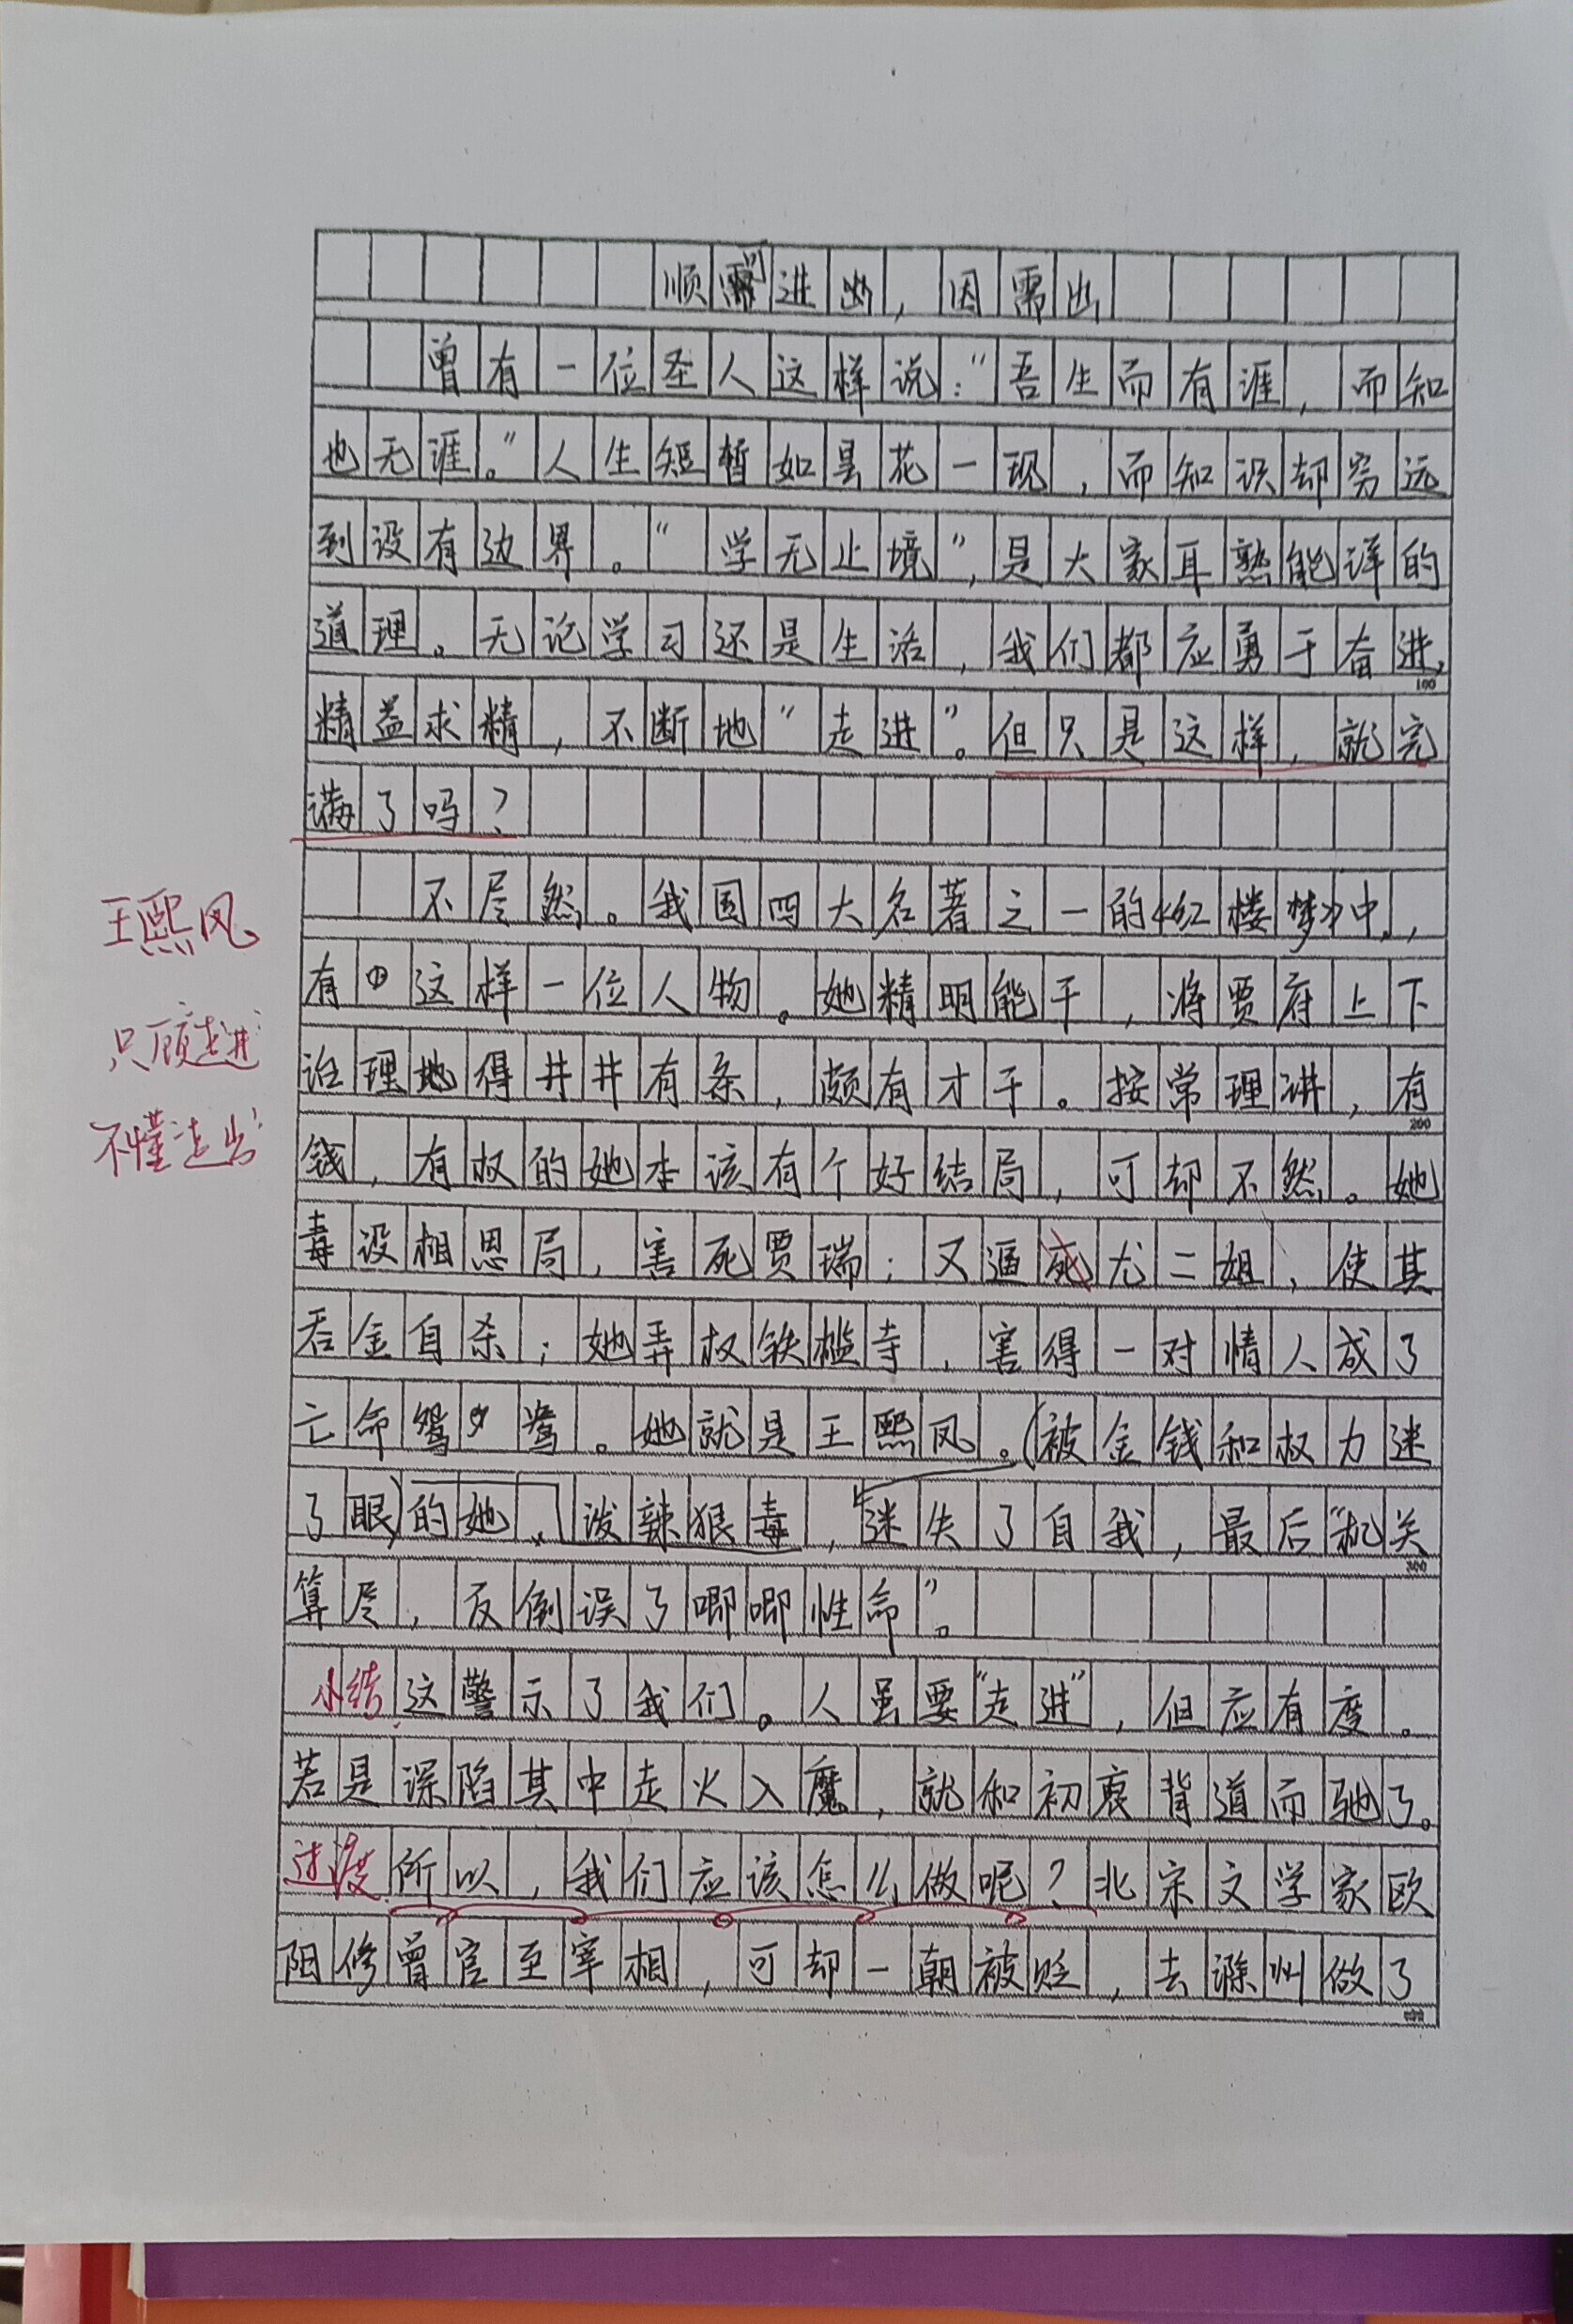 顺时进，因需出
曾有一位圣人这样说：“吾生而有涯，而知
也无涯。”人生短暂如昙花一现，而知识却穷远
到没有边界。“学无止境”，是大家耳熟能详的
道理。无论学习还是生活，我们都应勇于奋进，
100
精益求精，不断地“走进”。但只是这样，就完
满了吗？
不尽然。我国四大名著之一的《红楼梦》中，
王熙凤
有这样一位人物。她精明能干，将贾府上下
只顾走进
治理地得井井有条，颇有才干。按常理讲，有
200
不懂走出
钱，有权的她本该有个好结局，可却不然。她
毒设相思局，害死贾瑞；又逼死尤二姐，使其
吞金自杀；她弄权铁槛寺，害得一对情人成了
亡命鸳鸯。她就是王熙凤。（被金钱和权力迷
了眼）的她、泼辣狠毒，迷失了自我，最后“机关
300
算尽，反倒误了唧唧性命”。
小结 这警示了我们。人虽要“走进”，但应有度。
若是深陷其中走火入魔，就和初衷背道而驰了。
过渡 所以，我们应该怎么做呢？北宋文学家欧
阳修曾官至宰相，可却一朝被贬，去滁州做了